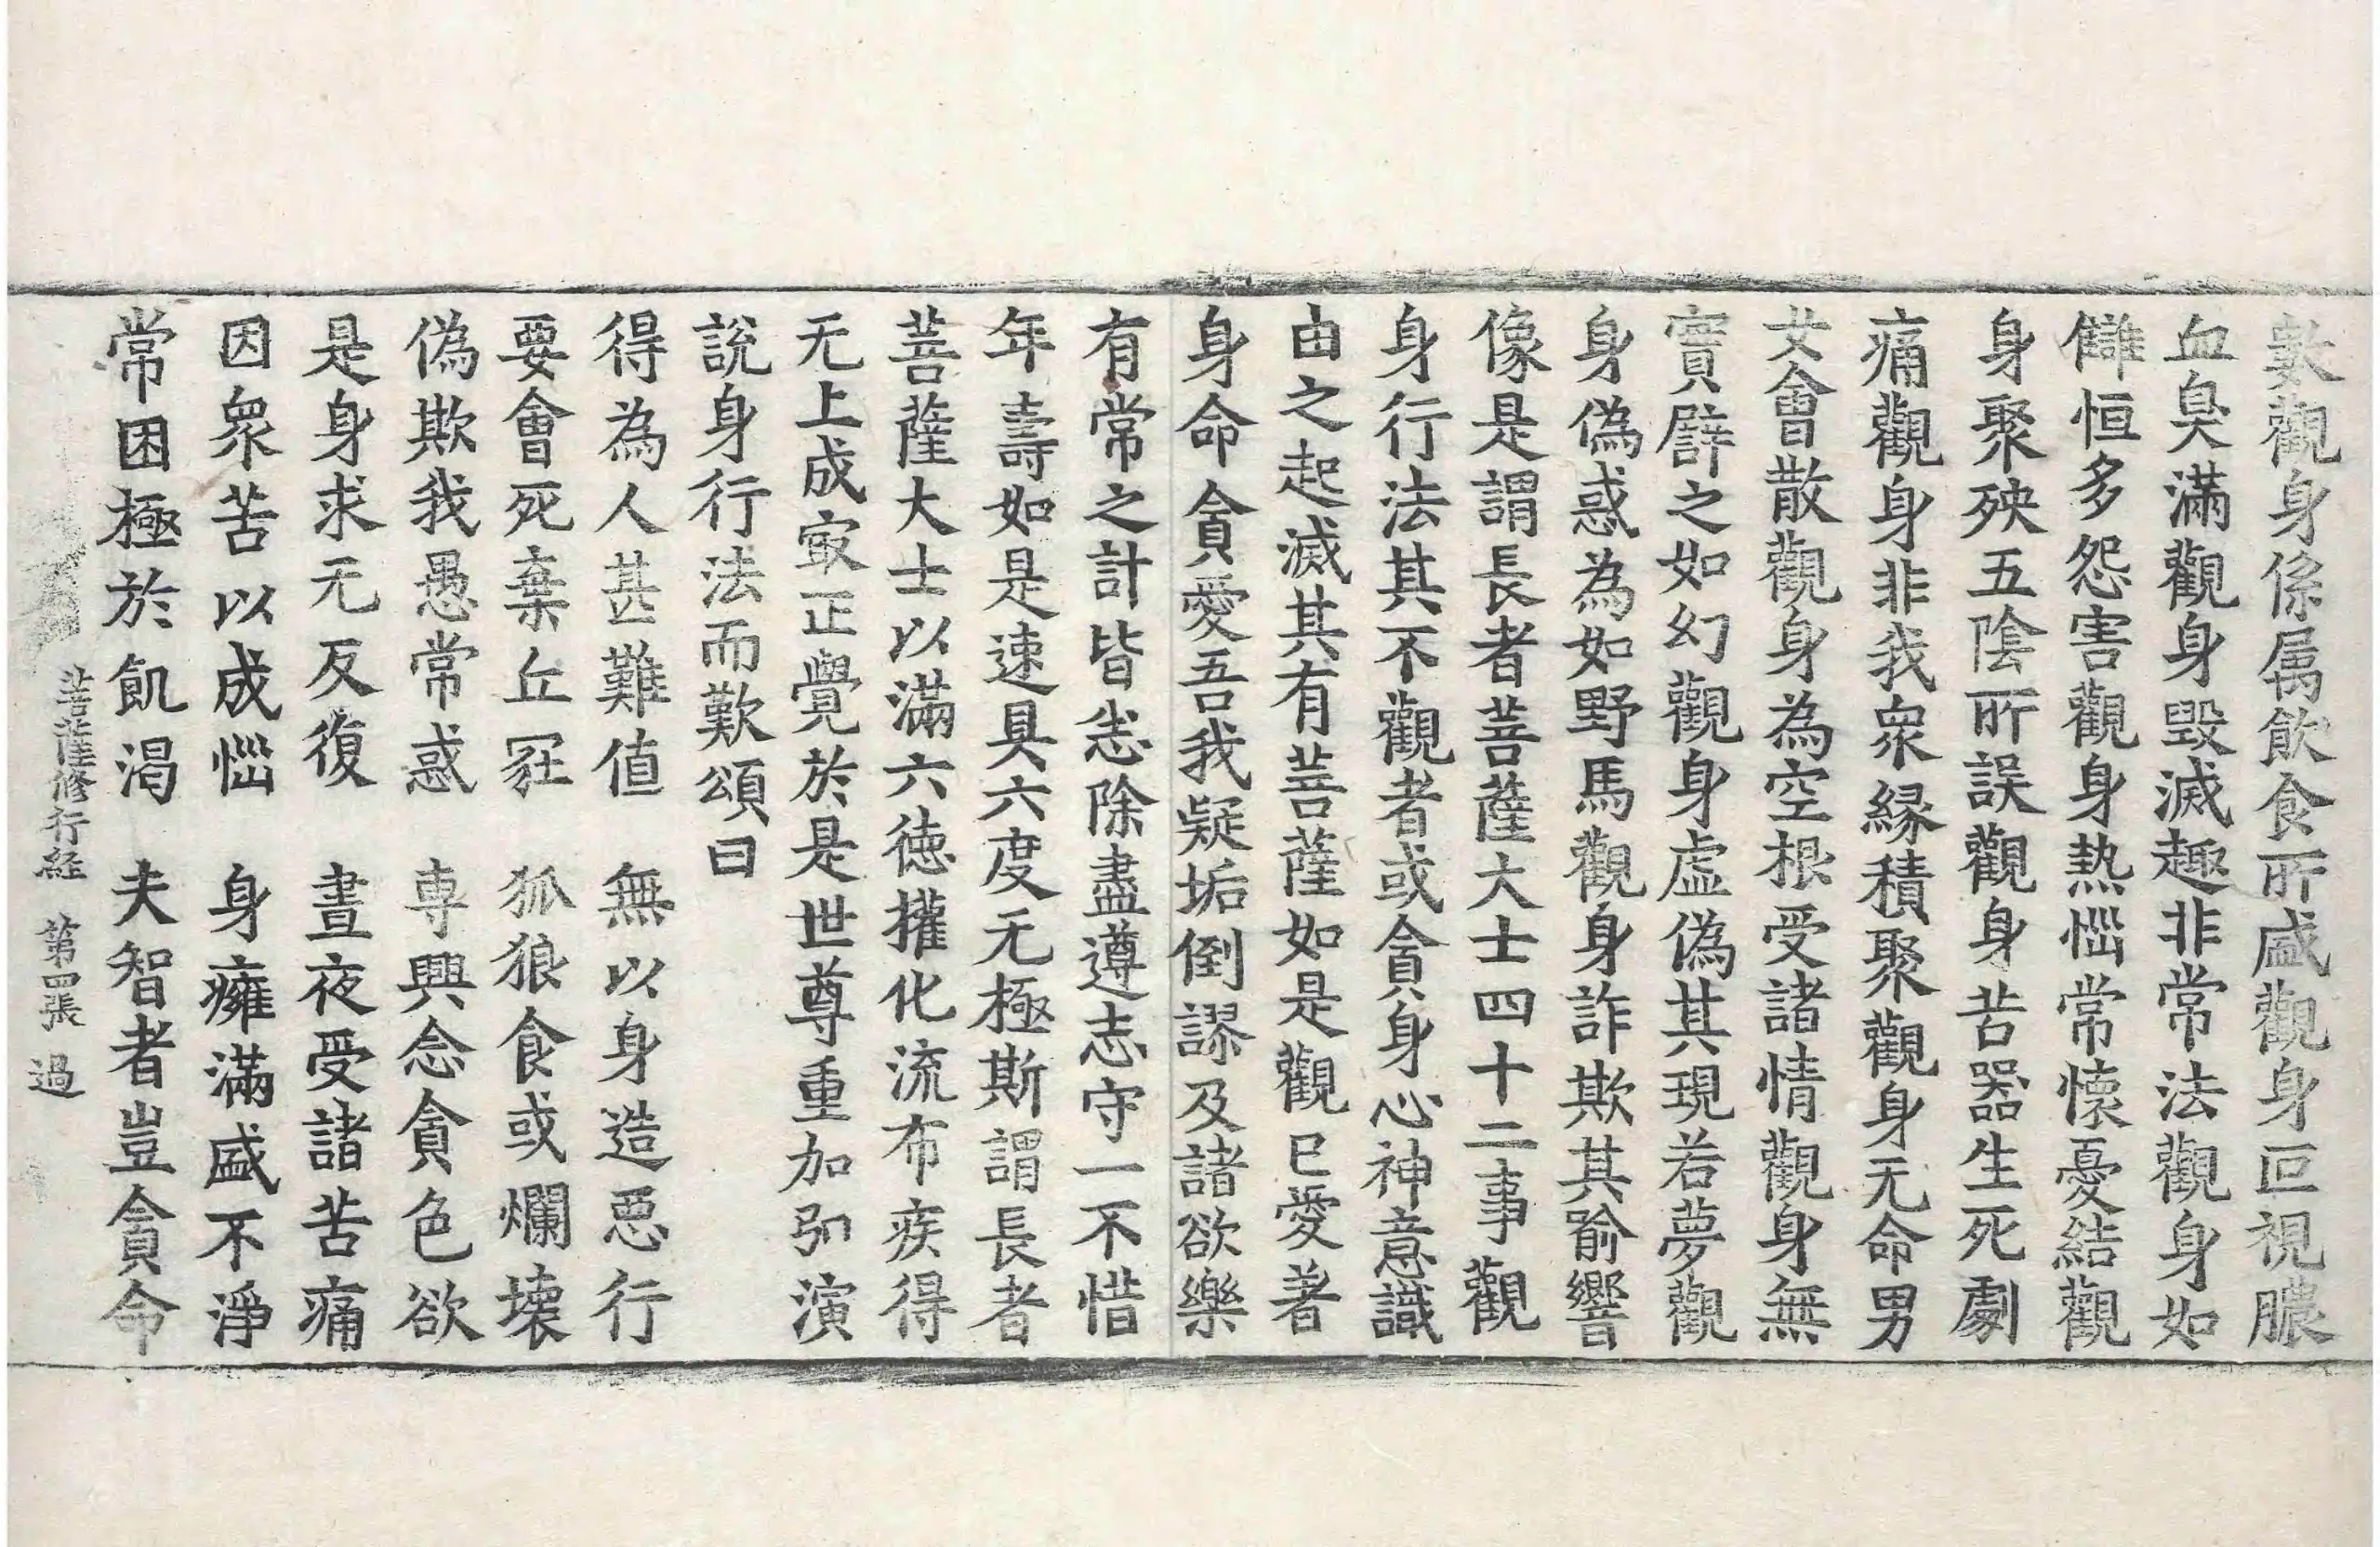 數觀身係属飲食所盛觀身叵視膿
血臭滿觀身毀滅趣非常法觀身如
讎恒多怨害觀身熱惱常懷憂結觀
身聚殃五陰所誤觀身苦器生死劇
痛觀身非我衆縁積聚觀身无命男
女會散觀身為空根受諸情觀身無
實譬之如幻觀身虛偽其現若夢觀
身偽惑為如野馬觀身詐欺其喻響
像是謂長者菩薩大士四十二事觀
身行法其不觀者或貪身心神意識
由之起滅其有菩薩如是觀已愛著
身命貪愛吾我疑垢倒謬及諸欲樂
有常之計皆悉除盡遵志守一不惜
年壽如是速具六度无極斯謂長者
菩薩大士以滿六德權化流布疾得
无上成㝡正覺於是世尊重加弘演
說身行法而歎頌曰
得為人甚難值　無以身造惡行
要會死棄丘冢　狐狼食或爛壞
偽欺我愚常惑　專興念貪色欲
是身求无反復　晝夜受諸苦痛
因衆苦以成惱　身癰滿盛不淨
常困極於飢渴　夫智者豈貪命
菩薩修行経　第四張　過